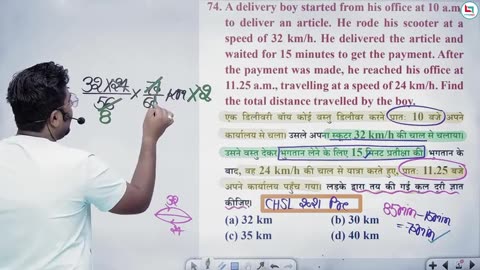 74. A delivery boy started from his office at 10 a.m
to deliver an article. He rode his scooter at a
speed of 32 km/h. He delivered the article and
waited for 15 minutes to get the payment. After
the payment was made, he reached his office at
11.25 a.m., travelling at a speed of 24 km/h. Find
the total distance travelled by the boy.
एक डिलीवरी बॉय कोई वस्तु डिलीवर करने प्रात: 10 बजे अपने
कार्यालय से चला। उसने अपना स्कूटर 32 km/h की चाल से चलाया।
उसने वस्तु देकर भुगतान लेने के लिए 15 मिनट प्रतीक्षा की भुगतान के
बाद, वह 24 km/h की चाल से यात्रा करते हुए, प्रात: 11.25
अपने कार्यालय पहुँच गया। लड़के द्वारा तय की गई कुल दूरी ज्ञात
कीजिए। CHSL 2021 Pre
(a) 32 km (b) 30 km
(c) 35 km (d) 40 km
85min-15min
=70min
32×24
56 × 70
8
×2
32
24